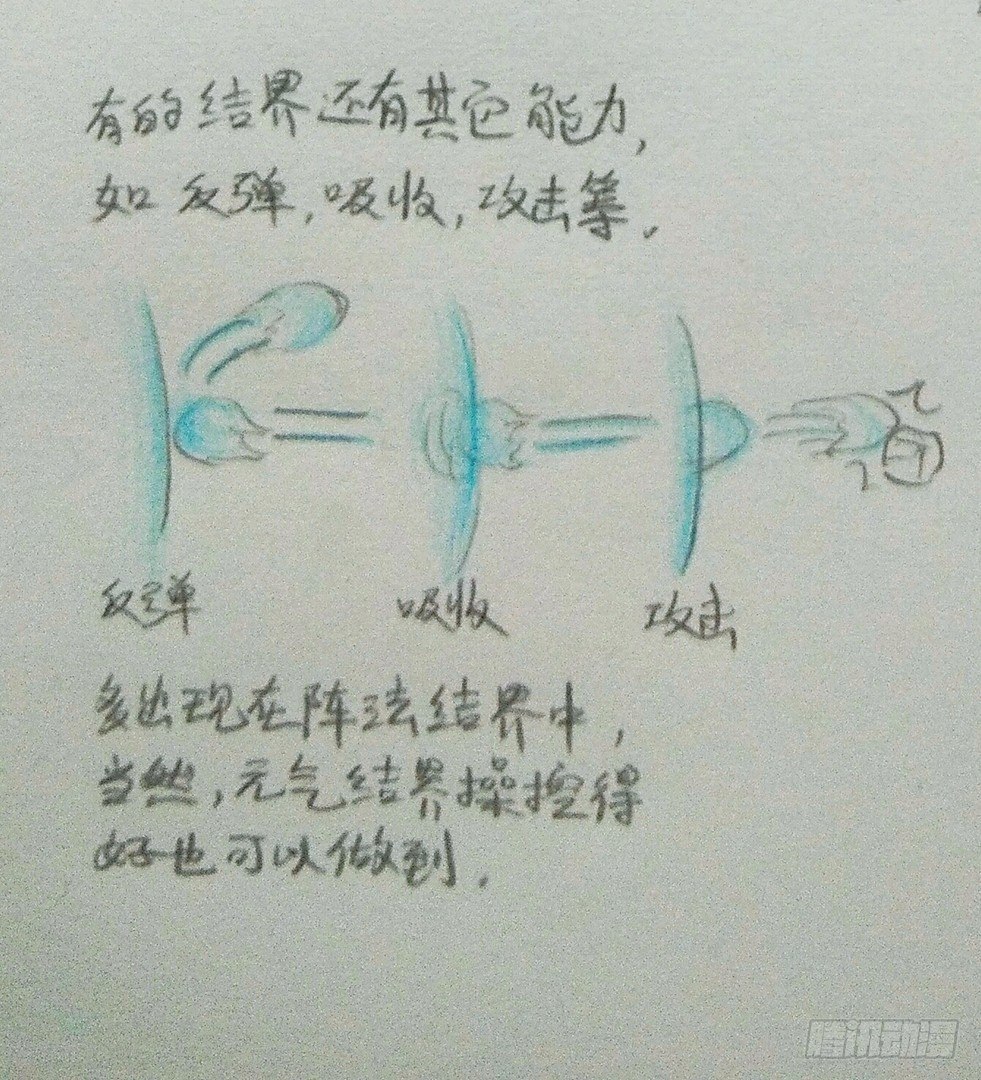 有的结界还有其它能力，
如反弹，吸收，攻击等．
反弹 吸收 攻击
多出现在阵法结界中，
当然，元气结界操控得
好也可以做到．
腾讯动漫